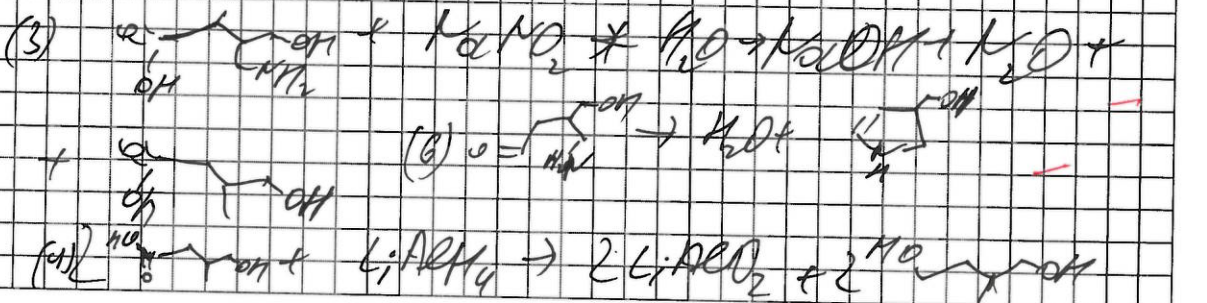 (3) OH + NaNO₂ + H₂O → NaOH + N₂O +
OH NH₂
(6) O= OH H₂N → H₂O + OH N H
+ OH OH
(4) 2 HO OH + LiAlH₄ → 2 LiAlO₂ + 2 HO OH